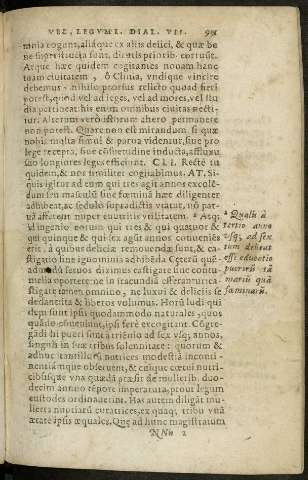 VEL LEGVM. DIAL. VII.
omnia cogunt, aliáque ex aliis deiici, & quæ be
ne superstructa sunt, dirutis princib. corrunt.
Atque hæc quidem cogitantes nouam hanc
tuam ciuitatem, ô Clinia, vndique vincire
debemus. nihilo prorsus relicto quoad fieri
potest, quod vel ad leges, vel ad mores, vel stu
dia pertineat: his enim omnibus ciuitas
tur. Alterum verò istorum altero permanere
non potest. Quare non est mirandum si quæ
nobis multa simul & parua videntur, siue pro
lege recepta, siue consuetudine inducta, affluxu
suo longiores leges efficiunt. CLI. Rectè tu
quidem, & nos similiter cogitabimus. AT. Si-
quis igitur ad eum qui tres agit annos excolen-
dum seu masculū siue fœminā hæc diligenter
adhibeat, ac sedulò suprà dictis vtatur, nō par-
uā afferent nuper enutritis vtilitatem. Atqui
id ingenio eorum qui tres & qui quatuor &
qui quinque & qui sex agūt annos conuenies
erit. à quibus deliciæ remouendę sunt, & ca-
stigatio sine ignominia adhibēda. Cęterū què-
admodū seruos diximus castigare sine contu-
melia oportere, ne in iracundiā efferantur ca-
stigare tamen omnino, ne luxui & deliciis se
dedant: ita & liberos volumus. Horū ludi qui-
dem sunt ipsi quodammodo naturales, quos
quādo conueniunt, ipsi ferè excogitant. Cōgre-
gādi hi pueri sunt à triēnio ad sex vsq; annos,
singuli in suæ tribus solennitate: quorum &
adhuc tantillorū nutrices modestiā inconti-
nentiāmque obseruent, & eaique cœtui nutri-
cibúsque vna quædā præsit de mulierib. duo-
decimi anno tēpore imperatura, prout legum
custodes ordinauerint. Has autem diligāt mu-
lieres nuptiarū curatrices, ex quaq; tribu vnā
ætate ipsis æquales. Quę ad hunc magistratum
NNn 2
a Qualis à
tertio anno
vsq; ad sex
tum debeat
esse educatio
puerorū tā
mariū quā
fœminarū.